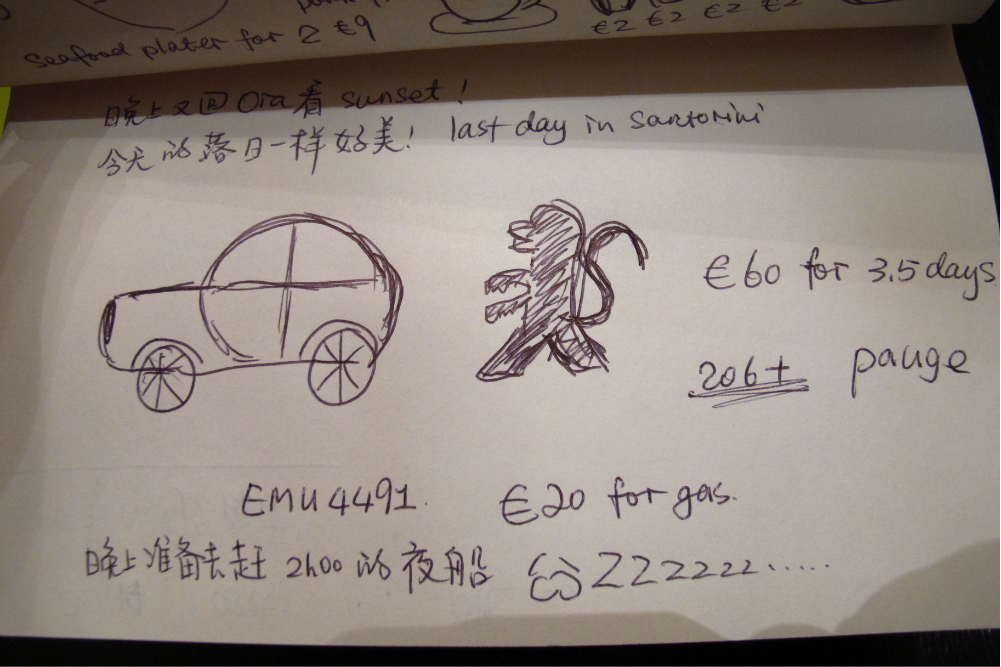 seafood plater for 2 €9
€2 €2 €2 €2
晚上又回Oia看 sunset!
今天的落日一样好美! last day in Santorini
€60 for 3.5 days
206+ pauge
EMU 4491.
€20 for gas.
晚上准备去赶 2h00 的夜船 ZZZzzzz.....